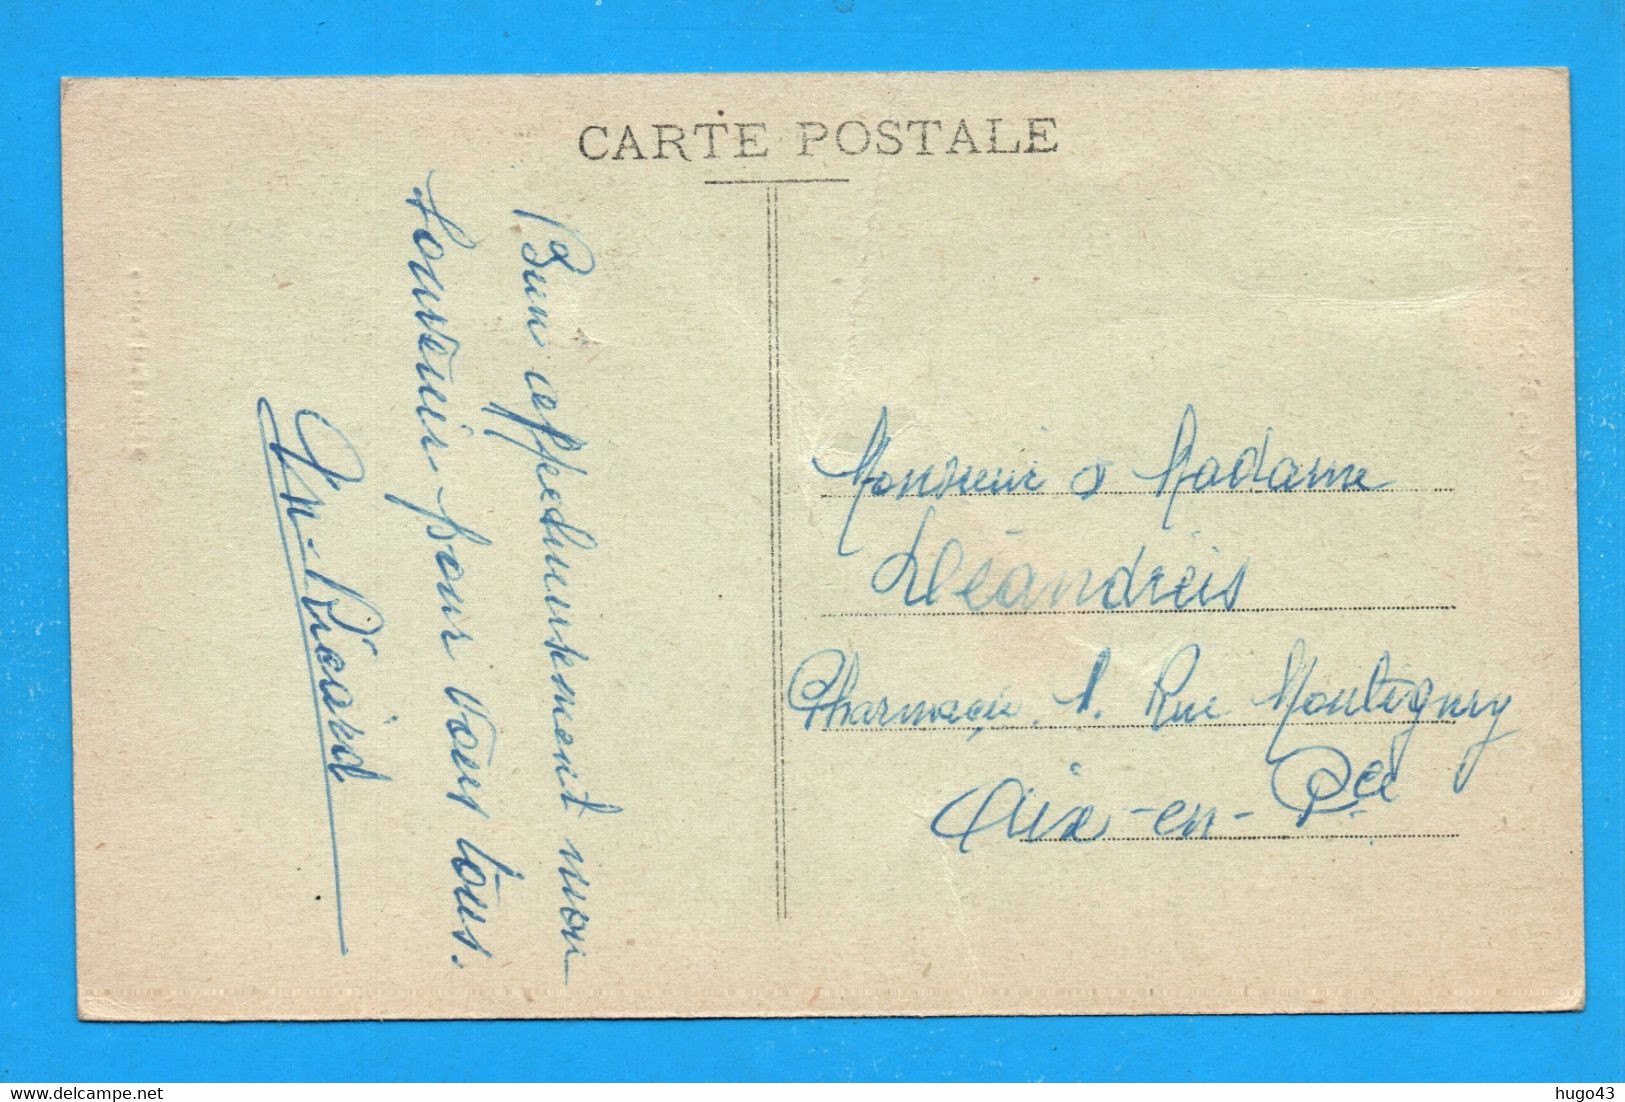 CARTE POSTALE
Bien affectueusement mon
souvenir pour vous tous.
M. Ricard
Monsieur & Madame
Déandréis
Pharmacie. 1. Rue Montigny
Aix-en-Pce
hugo43